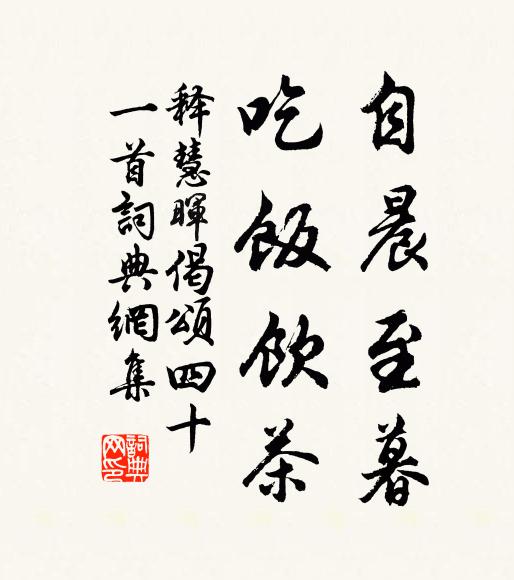 自晨至暮
吃飯飲茶
释慧暉偈頌四十
一首詞典網集
詞典网印